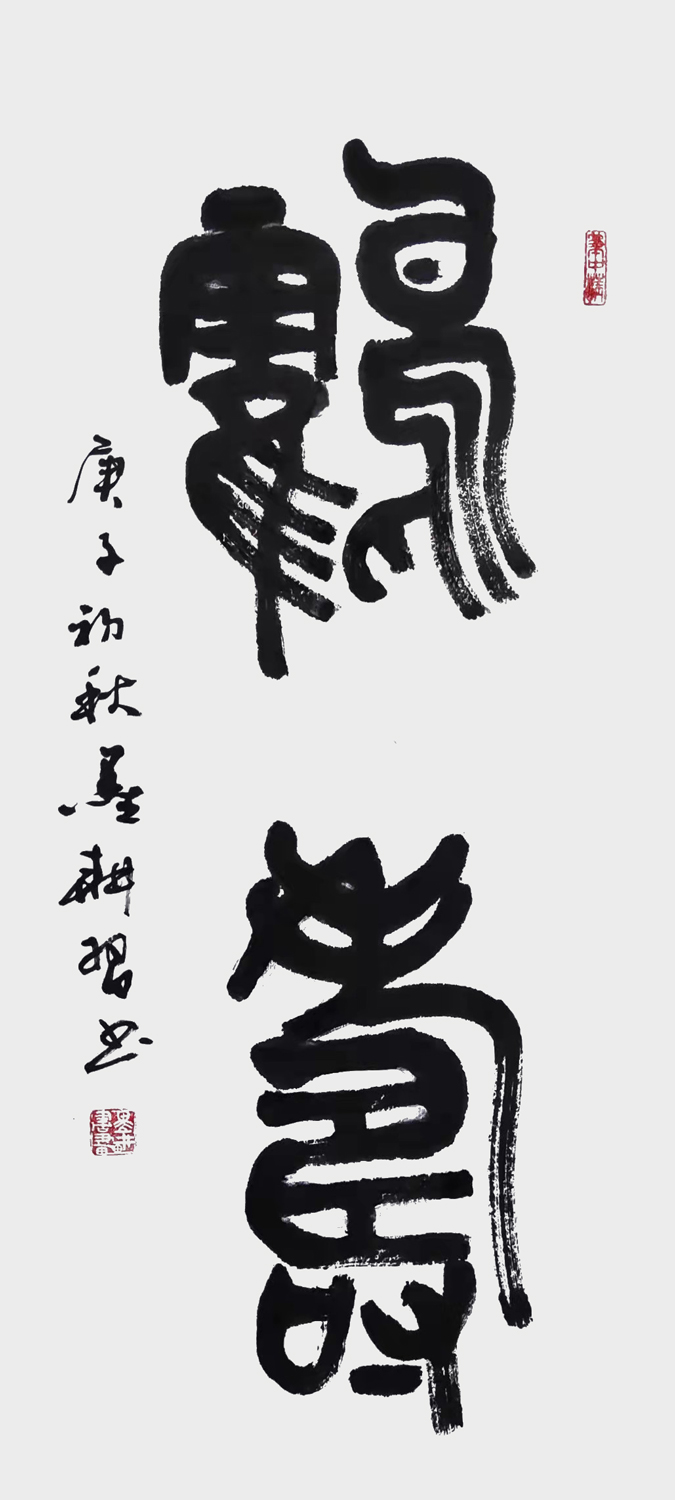 鶴壽
庚子初秋墨耕習书